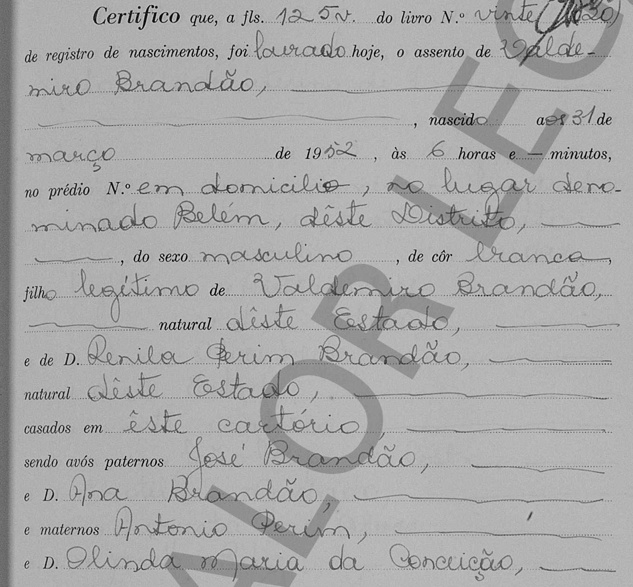 Certifico que, a fls. 125v. do livro N.º vinte (20)
de registro de nascimentos, foi lavrado hoje, o assento de Valde-
miro Brandão,
, nascido aos 31 de
março de 1952, às 6 horas e — minutos,
no prédio N.º em domicilio, no lugar deno-
minado Belém, dêste Distrito,
, do sexo masculino, de côr branca,
filho legítimo de Valdemiro Brandão,
natural dêste Estado,
e de D. Renila Perim Brandão,
natural dêste Estado,
casados em êste cartório,
sendo avós paternos José Brandão,
e D. Ana Brandão,
e maternos Antonio Perim,
e D. Olinda Maria da Conceição,
VALOR LEG